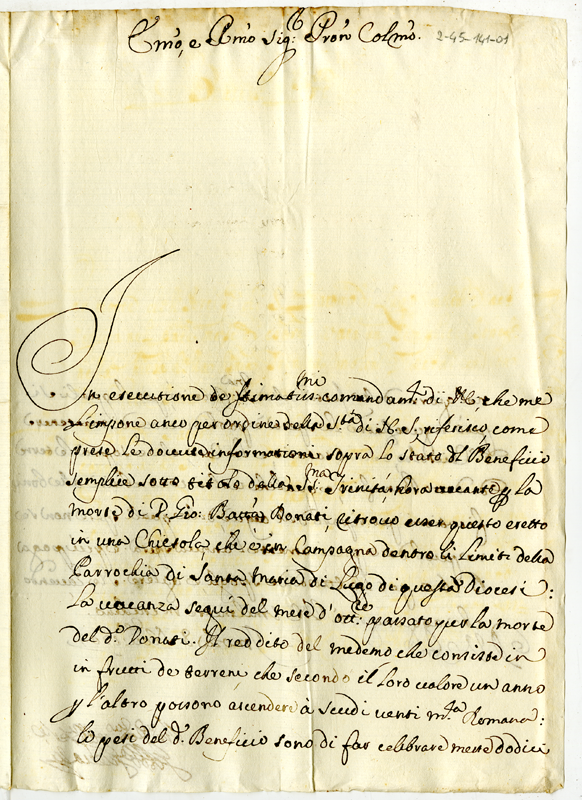 Emo, e Rmo Sig.r Pron Colmo. 2-45-141-01
In esecutione de stimatis.mi comandam.ti di che me
l'impone anco per ordine della S.tà di N. S. riferisco, come
prese le dovute informationi sopra lo stato del Beneficio
semplice sotto titolo della S.ma Trinità, hora vacante p la
morte di P. Gio: Batta Donati, ritrovo esser questo eretto
in una Chiesola, che è in Campagna dentro li limiti della
Parrochia di Santa Maria di Lugo di questa Diocesi:
La vacanza seguì del mese d'ott.e passato per la morte
del d.o Donati. Il reddito del medemo che consiste in
in frutti de terreni, che secondo il loro valore un anno
p l'altro possono ascendere à scudi venti m.ta Romana:
li pesi del d.o Beneficio sono di far celebrare messe dodici